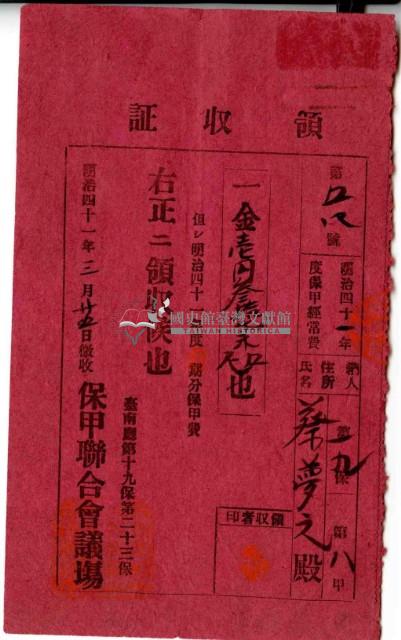 領収証
第 號
明治四十一年
度保甲經常費
納人
住所
氏名
第十九保第八甲
蔡夢之殿
一金壱円
也
但シ明治四十 年度 期分保甲費
右正ニ領収候也
臺南廳第十九保第二十三保
明治四十一年三月廿五日徴收
保甲聯合會議塲
領収者印
國史館臺灣文獻館
TAIWAN HISTORICA